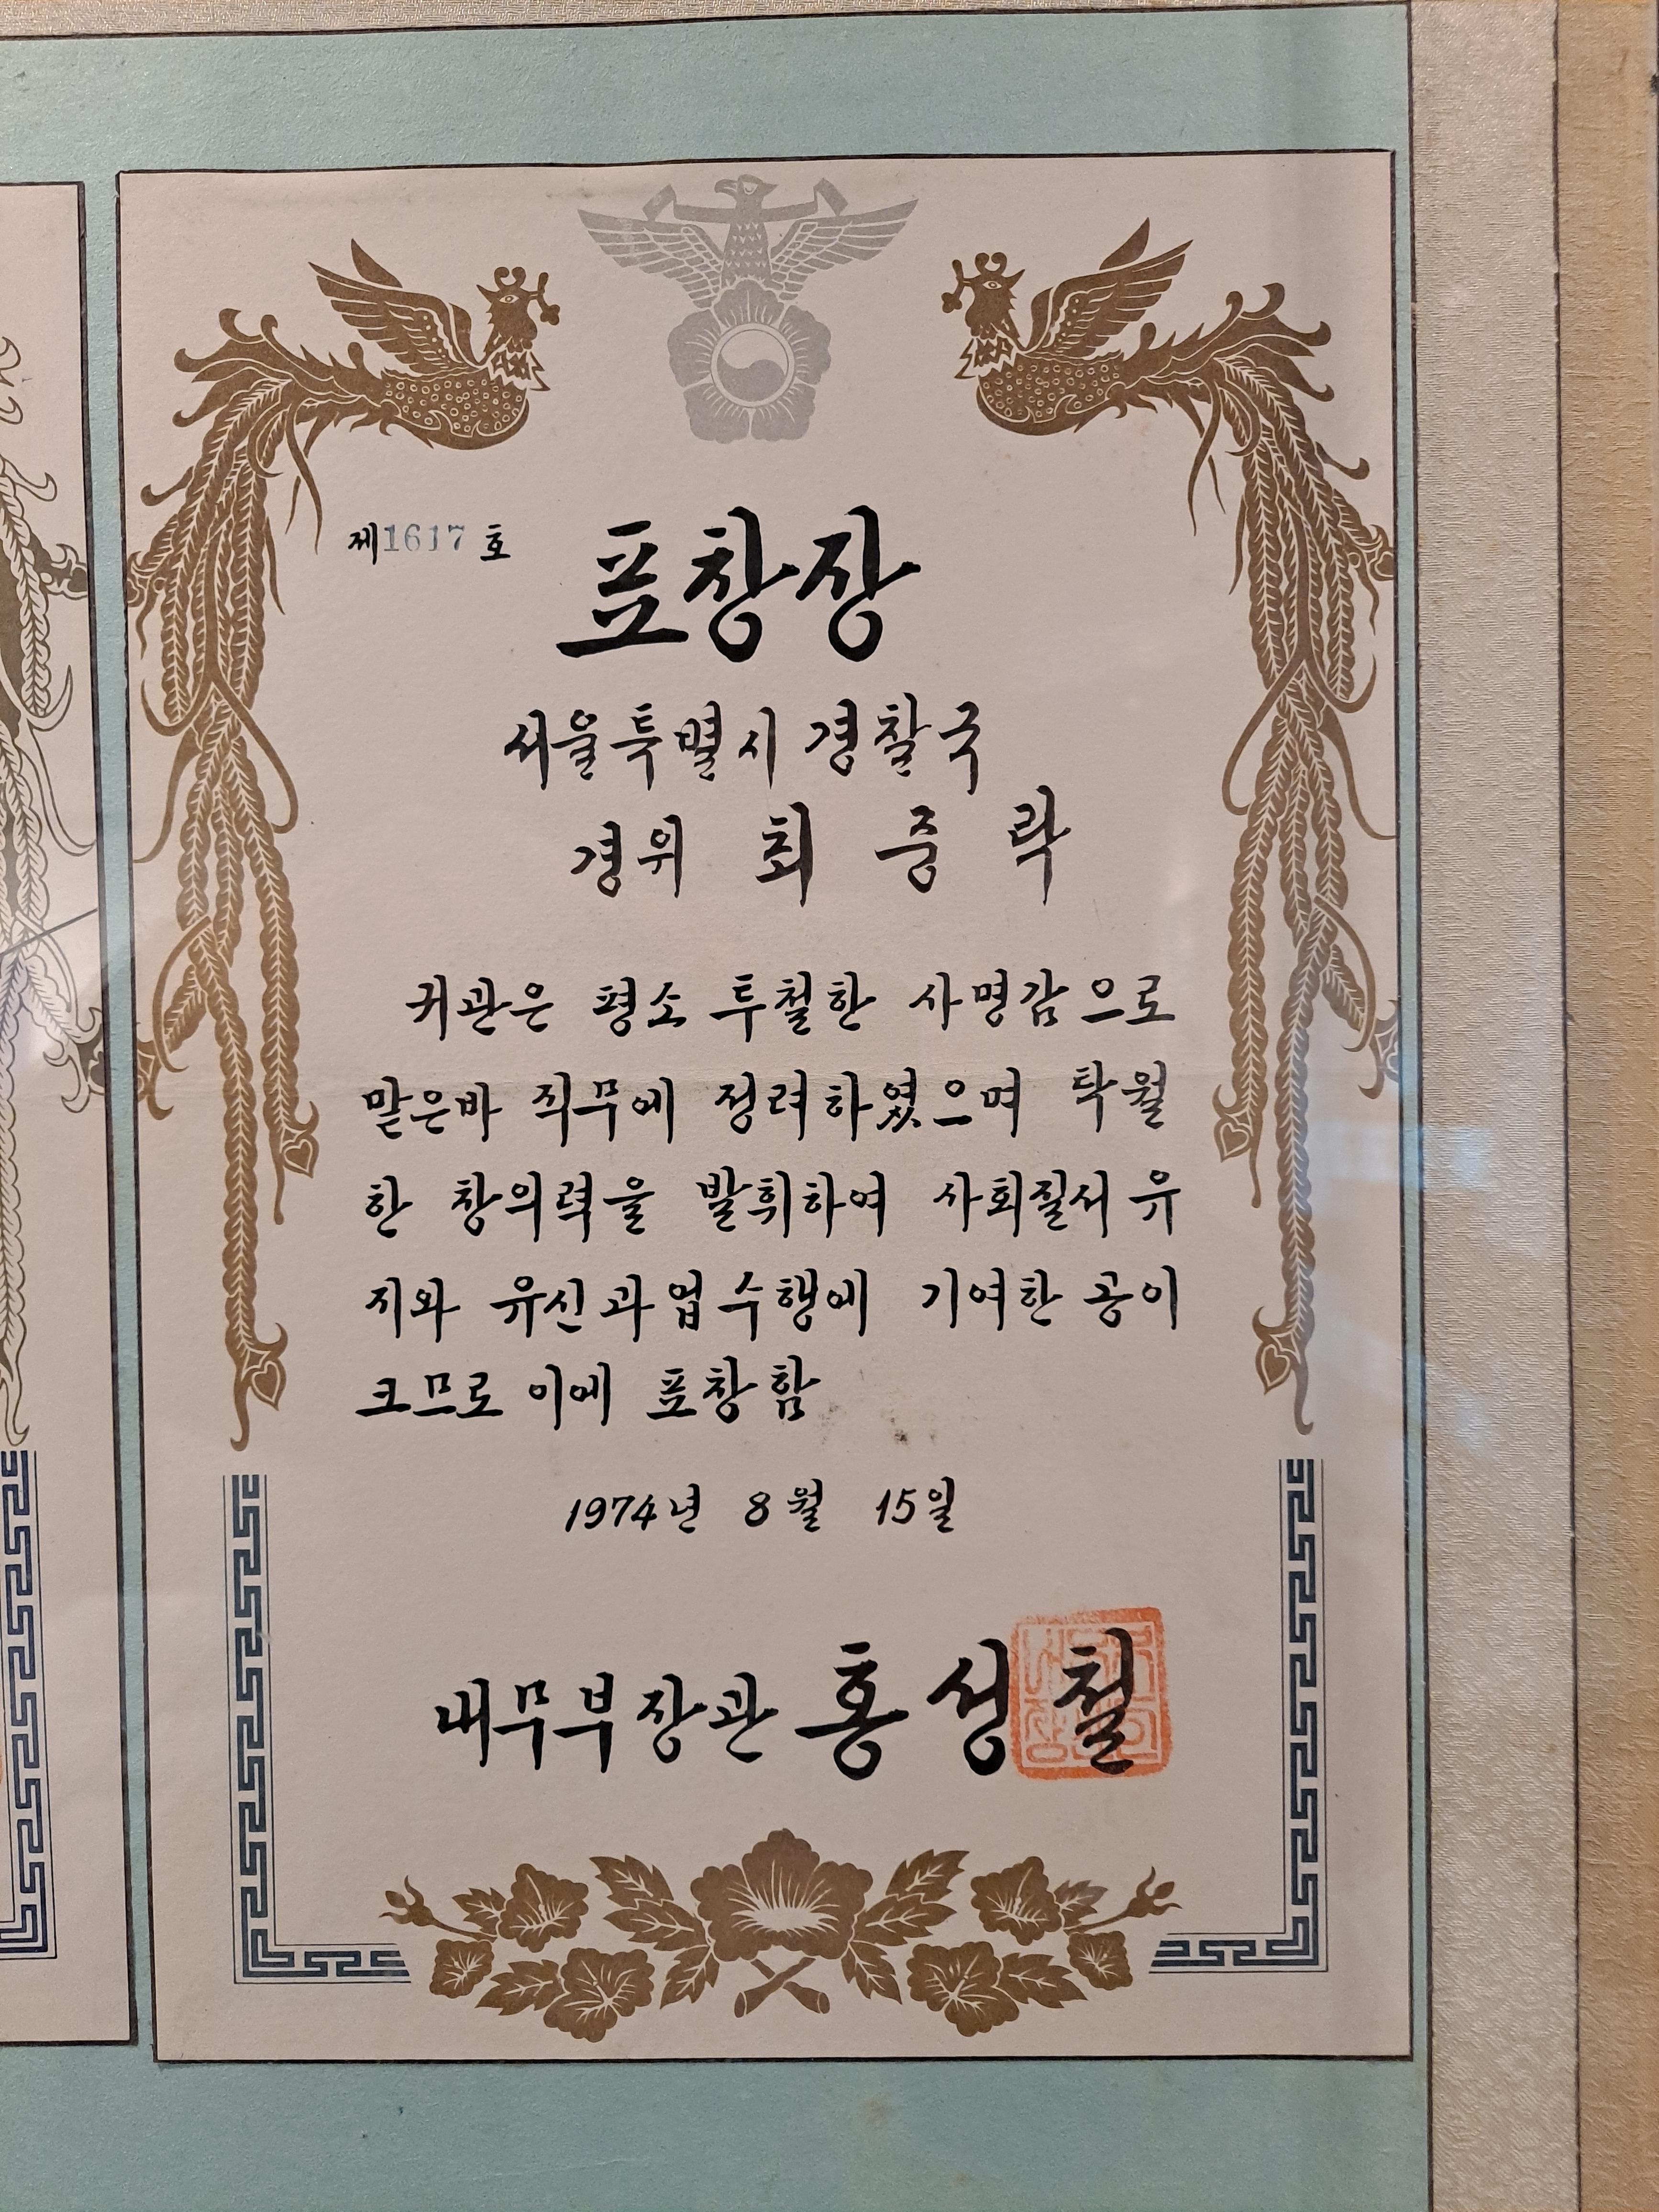 제1617호
표창장
서울특별시 경찰국
경위 최 중 락
귀관은 평소 투철한 사명감으로
맡은바 직무에 정려하였으며 탁월
한 창의력을 발휘하여 사회질서 유
지와 유신과업수행에 기여한 공이
크므로 이에 표창함
1974년 8월 15일
내무부장관 홍성철